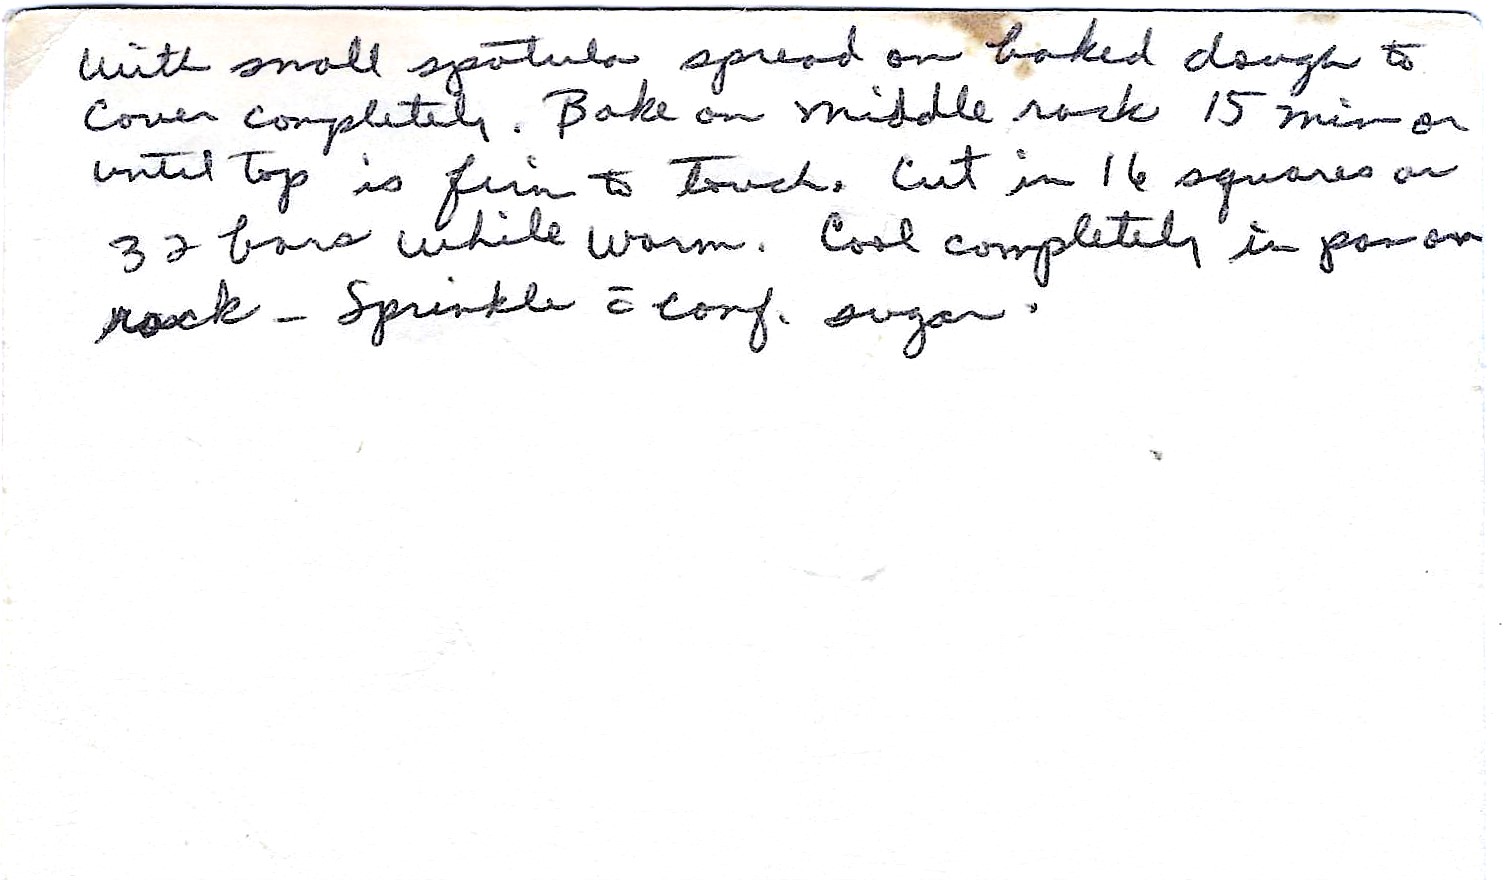 With small spatula spread on baked dough to
cover completely. Bake on middle rack 15 min or
until top is firm to touch. Cut in 16 squares or
32 bars while warm. Cool completely in pan on
rack - Sprinkle c̄ conf. sugar.